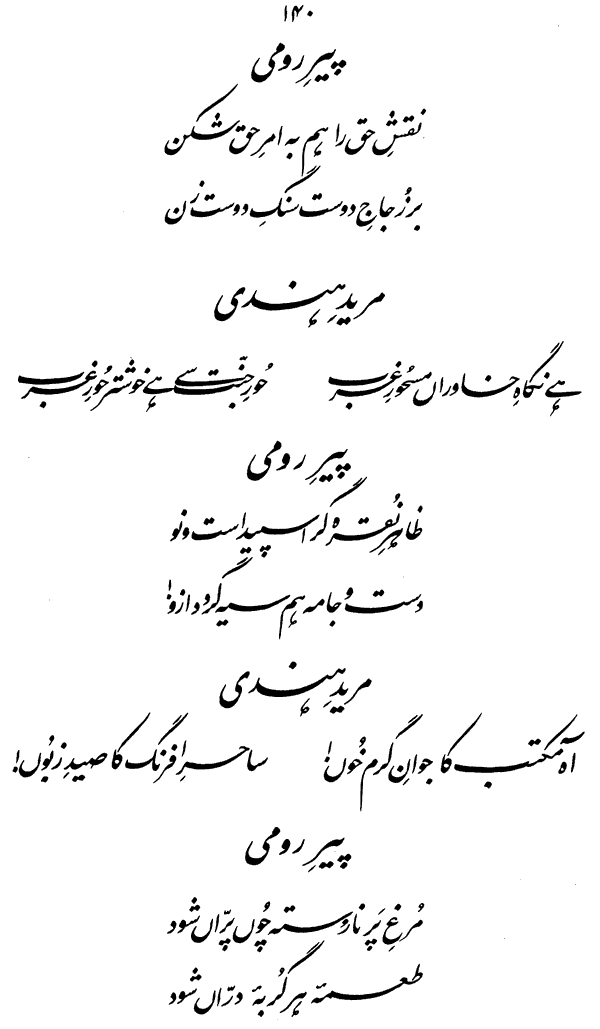 ۱۴۰
پیرِ رومی
نقشِ حق را ہم بہ امرِ حق شکن
بر زُجاجِ دوست سنگِ دوست زن
مریدِ ہندی
ہے نگاہِ خاوراں مسحورِ غرب حُورِ جنّت سے ہے خوشتر حُورِ غرب
پیرِ رومی
ظاہرِ نُقرہ گر اسپید است و نو
دست و جامہ ہم سیہ گردد ازو!
مریدِ ہندی
آہ مکتب کا جوانِ گرم خُوں! ساحرِ افرنگ کا صیدِ زبُوں!
پیرِ رومی
مُرغِ پَر نارُستہ چُوں پرّاں شود
طعمۂ ہر گُربۂ درّاں شود